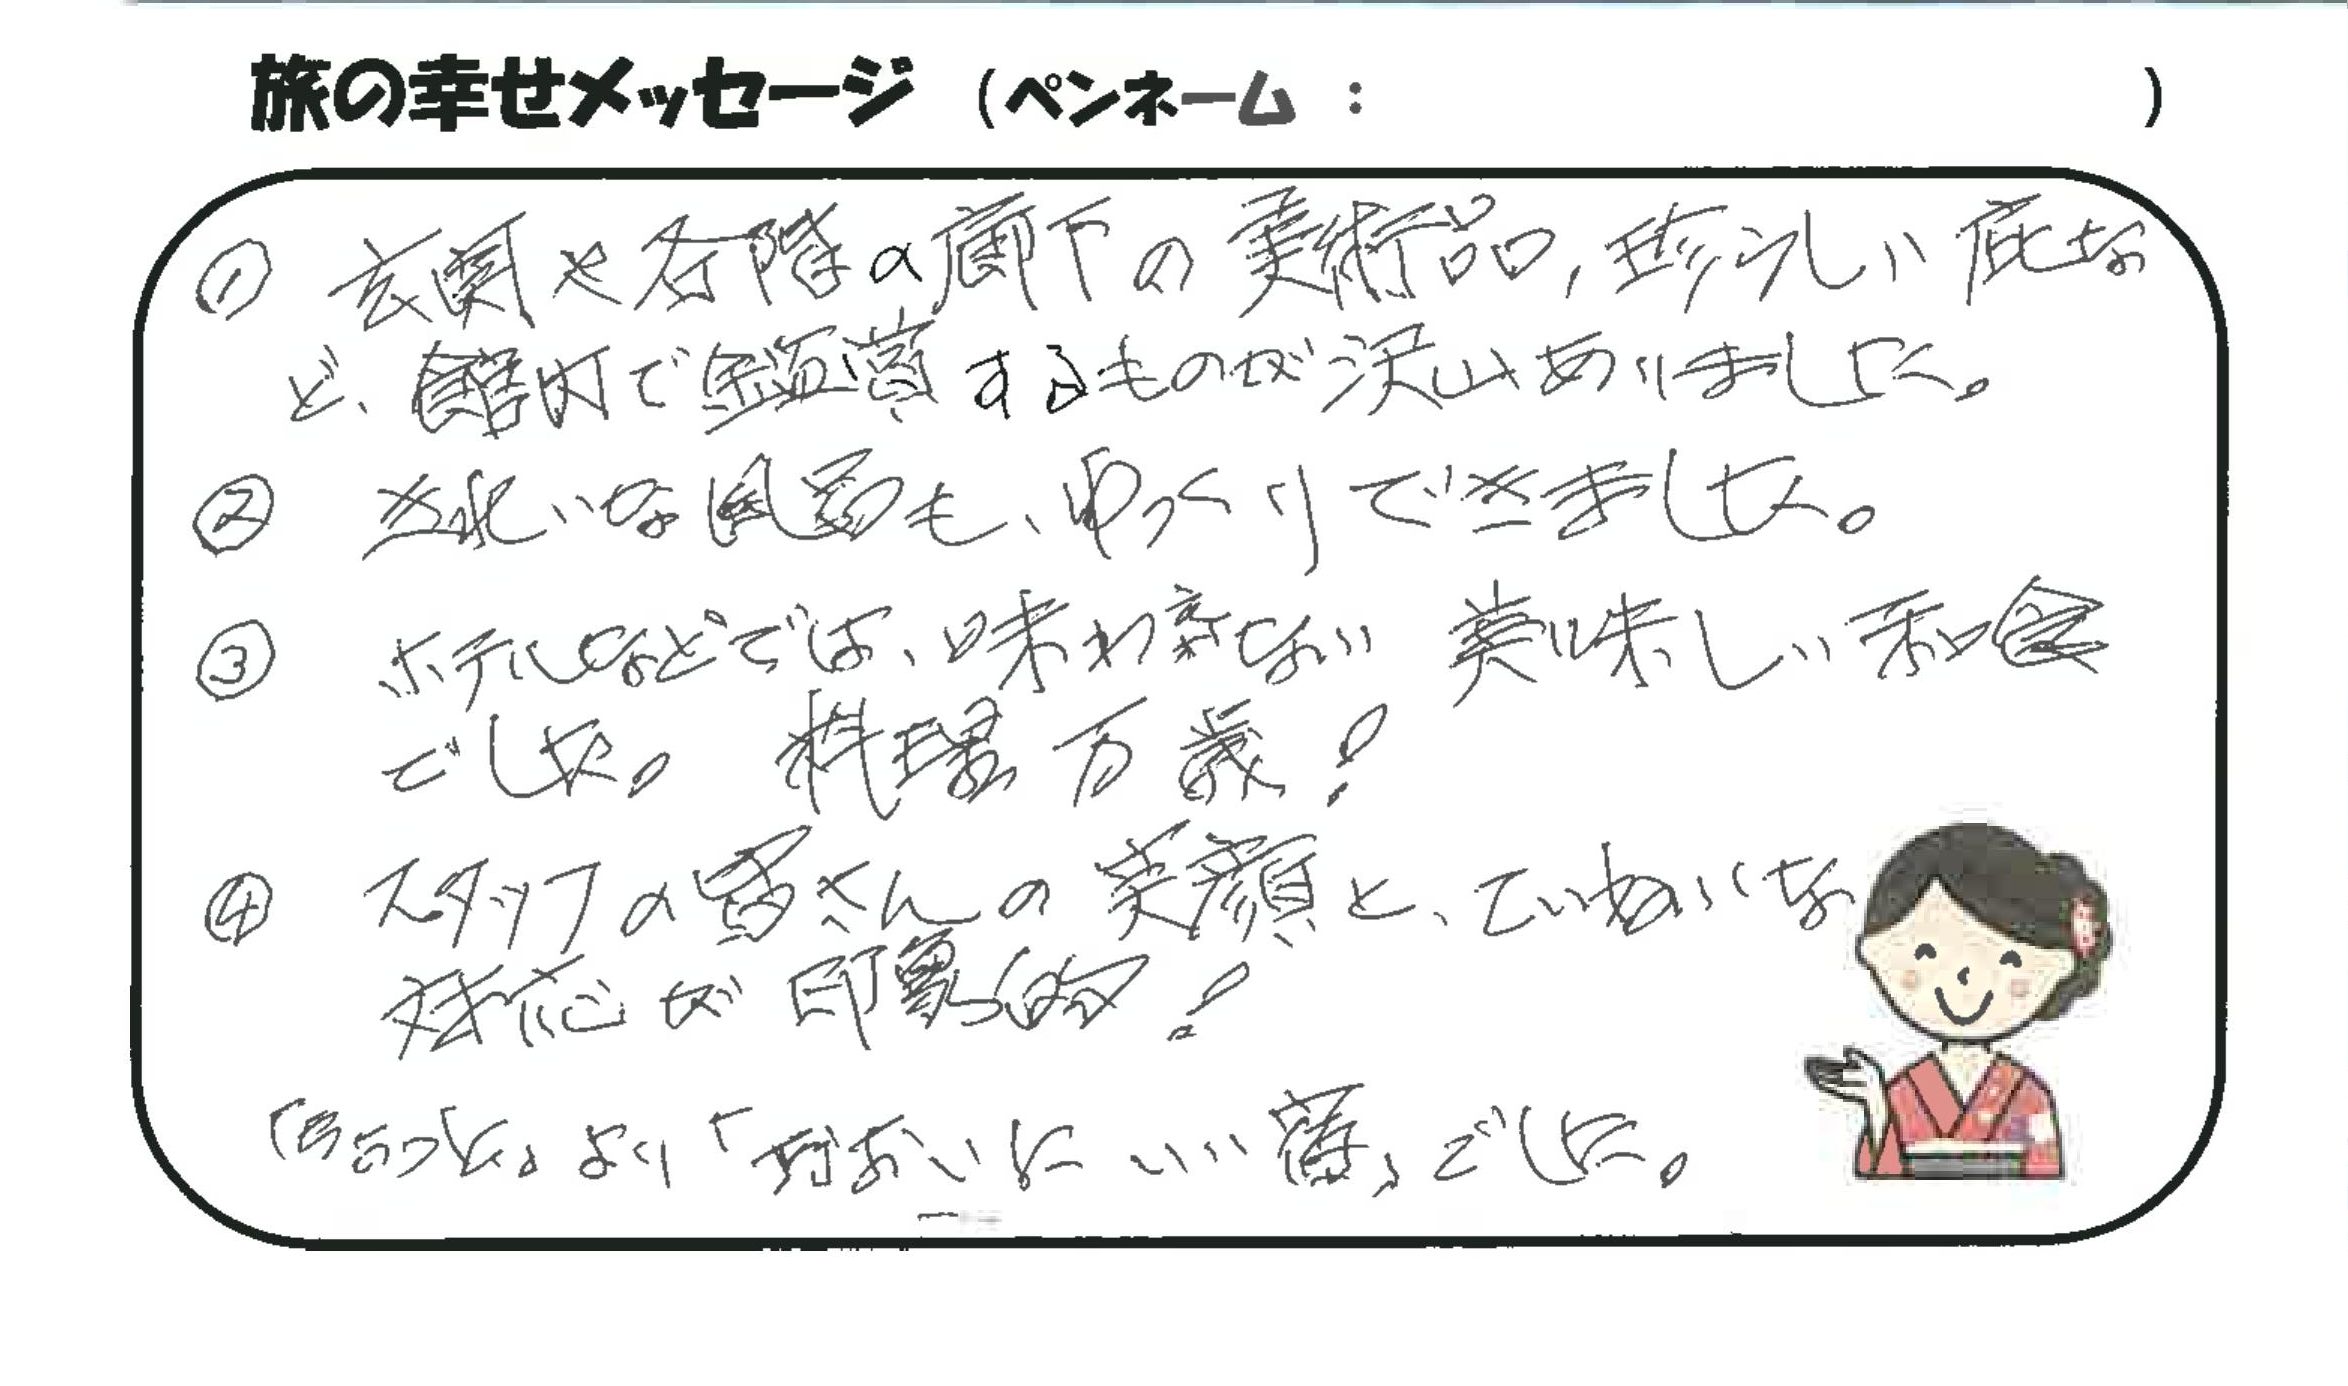 旅の幸せメッセージ (ペンネーム : )
① 玄関や各階の廊下の美術品, 珍らしい庇な
ど、館内で鑑賞するものが沢山ありました。
② きれいな風呂も、ゆっくりできました。
③ ホテルなどでは、味わえない 美味しい和食
でした。 料理 万歳!
④ スタッフの皆さんの笑顔と、ていねいな
対応が印象的!
「ちょっと」より「おおいに いい宿」でした。